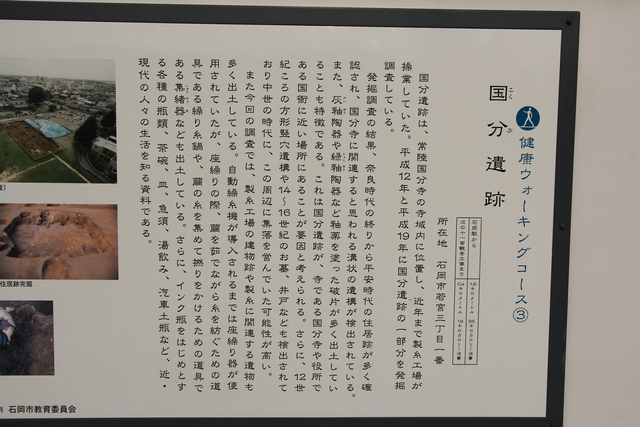 健康ウォーキングコース③
国分遺跡
こくぶ
石岡駅から
次の十一面観音三像まで
所在地　石岡市若宮三丁目一番
国分遺跡は、常陸国分寺の寺域内に位置し、近年まで製糸工場が
操業していた。平成12年と平成19年に国分遺跡の一部分を発掘
調査している。
発掘調査の結果、奈良時代の終りから平安時代の住居跡が多く確
認され、国分寺に関連すると思われる溝状の遺構が検出されている。
また、灰釉陶器や緑釉陶器など釉薬を塗った破片が多く出土してい
ることも特徴である。これは国分遺跡が、寺である国分寺や役所で
ある国衙に近い場所にあることが要因と考えられる。さらに、12世
紀ころの方形竪穴遺構や14〜16世紀のお墓、井戸なども検出されて
おり中世の時代に、この周辺に集落を営んでいた可能性が高い。
また今回の調査では、製糸工場の建物跡や製糸に関連する遺物も
多く出土している。自動繰糸機が導入されるまでは座繰り器が使
用されていたが、座繰りの際、繭を茹でながら糸を紡ぐための道
具である繰り糸鍋や、繭の糸を集めて撚りをかけるための道具で
ある集緒器なども出土している。さらに、インク瓶をはじめとす
る各種の瓶類、茶碗、皿、急須、湯飲み、汽車土瓶など、近・
現代の人々の生活を知る資料である。
住居跡完掘
石岡市教育委員会